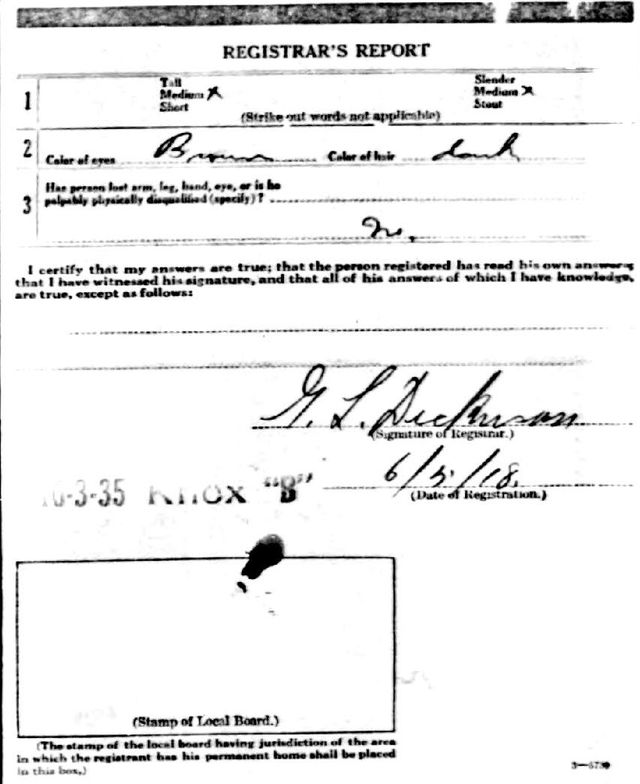 REGISTRAR'S REPORT
1
Tall
Medium X
Short
Slender
Medium X
Stout
(Strike out words not applicable)
2 Color of eyes Brown Color of hair dark
3 Has person lost arm, leg, hand, eye, or is he
palpably physically disqualified (specify)?
No.
I certify that my answers are true; that the person registered has read his own answers,
that I have witnessed his signature, and that all of his answers of which I have knowledge,
are true, except as follows:
G. L. Dickinson
(Signature of Registrar.)
6/5/18.
(Date of Registration.)
-3-35 Knox "B"
(Stamp of Local Board.)
(The stamp of the local board having jurisdiction of the area
in which the registrant has his permanent home shall be placed
in this box.)